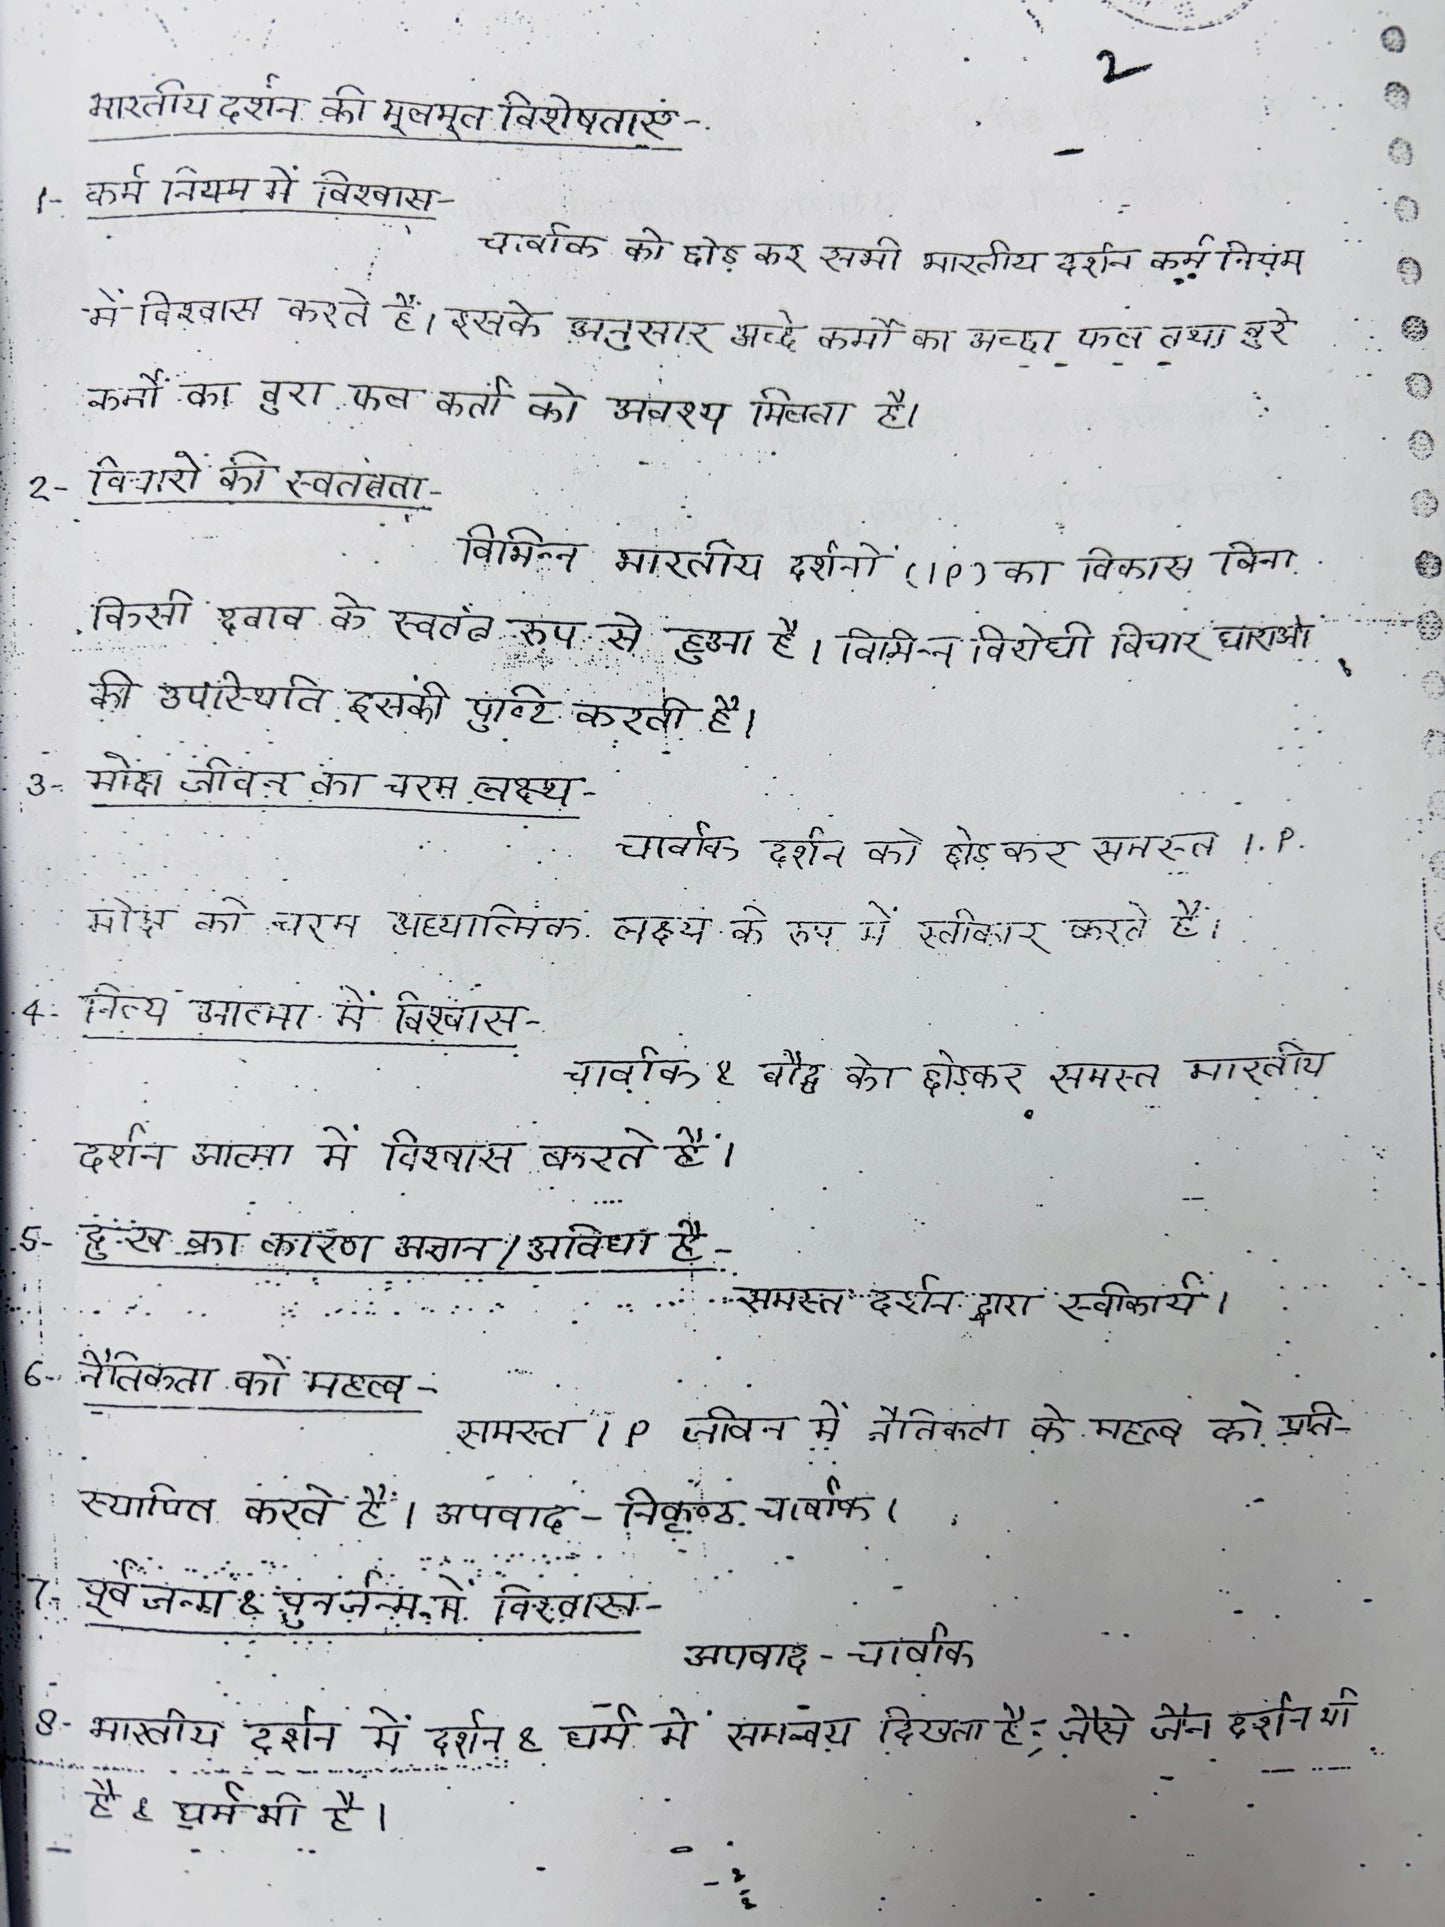 2
भारतीय दर्शन की मूलभूत विशेषताएं-
1- कर्म नियम में विश्वास-
चार्वाक को छोड़ कर सभी भारतीय दर्शन कर्म नियम
में विश्वास करते हैं। इसके अनुसार अच्छे कर्मों का अच्छा फल तथा बुरे
कर्मों का बुरा फल कर्ता को अवश्य मिलता है।
2- विचारों की स्वतंत्रता-
विभिन्न भारतीय दर्शनों (IP) का विकास बिना
किसी दवाव के स्वतंत्र रूप से हुआ है। विभिन्न विरोधी विचार धाराओं
की उपस्थिति इसकी पुष्टि करती है।
3- मोक्ष जीवन का चरम लक्ष्य-
चार्वाक दर्शन को छोड़ कर समस्त I.P.
मोक्ष को चरम अध्यात्मिक लक्ष्य के रूप में स्वीकार करते हैं।
4- नित्य आत्मा में विश्वास-
चार्वाक & बौद्ध को छोड़कर समस्त भारतीय
दर्शन आत्मा में विश्वास करते हैं।
5- दुःख का कारण अज्ञान/अविधा है-
समस्त दर्शन द्वारा स्वीकार्य।
6- नैतिकता को महत्व-
समस्त IP जीवन में नैतिकता के महत्व को प्रति-
स्थापित करते हैं। अपवाद - निकृष्ठ चार्वाक।
7- पूर्व जन्म & पुनर्जन्म में विश्वास-
अपवाद - चार्वाक
8- भारतीय दर्शन में दर्शन & धर्म में समन्वय दिखता है; जैसे जैन दर्शन भी
है & धर्म भी है।